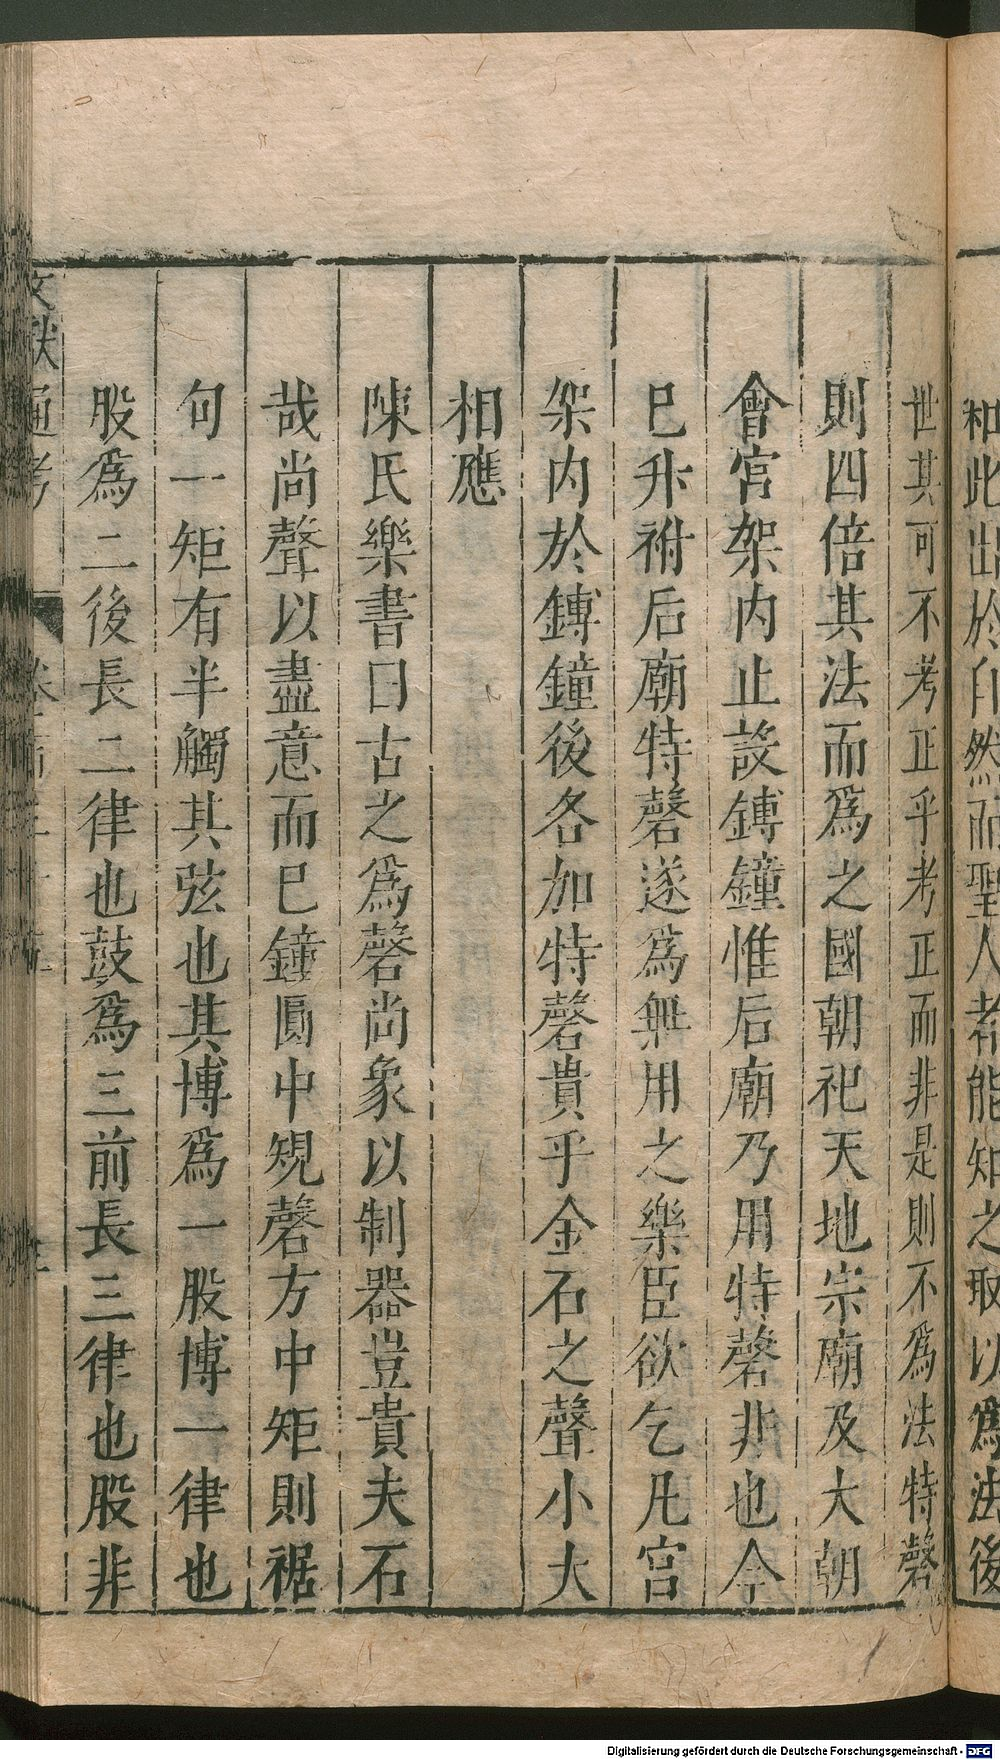 和此出於自然而聖人者能知之取以為法後
世其可不考正乎考正而非是則不爲法特磬
則四倍其法而爲之國朝祀天地宗廟及大朝
會宮架内止設鎛鐘惟后廟乃用特磬非也今
已升祔后廟特磬遂爲無用之樂臣欲乞凡宫
架内於鎛鐘後各加特磬貴乎金石之聲小大
相應
陳氏樂書曰古之爲磬尚象以制器豈貴夫石
哉尚聲以盡意而已鐘圓中規磬方中矩則裾
句一矩有半觸其弦也其博爲一股博一律也
股爲二後長二律也鼓爲三前長三律也股非
文獻通考
Digitalisierung gefördert durch die Deutsche Forschungsgemeinschaft - DFG